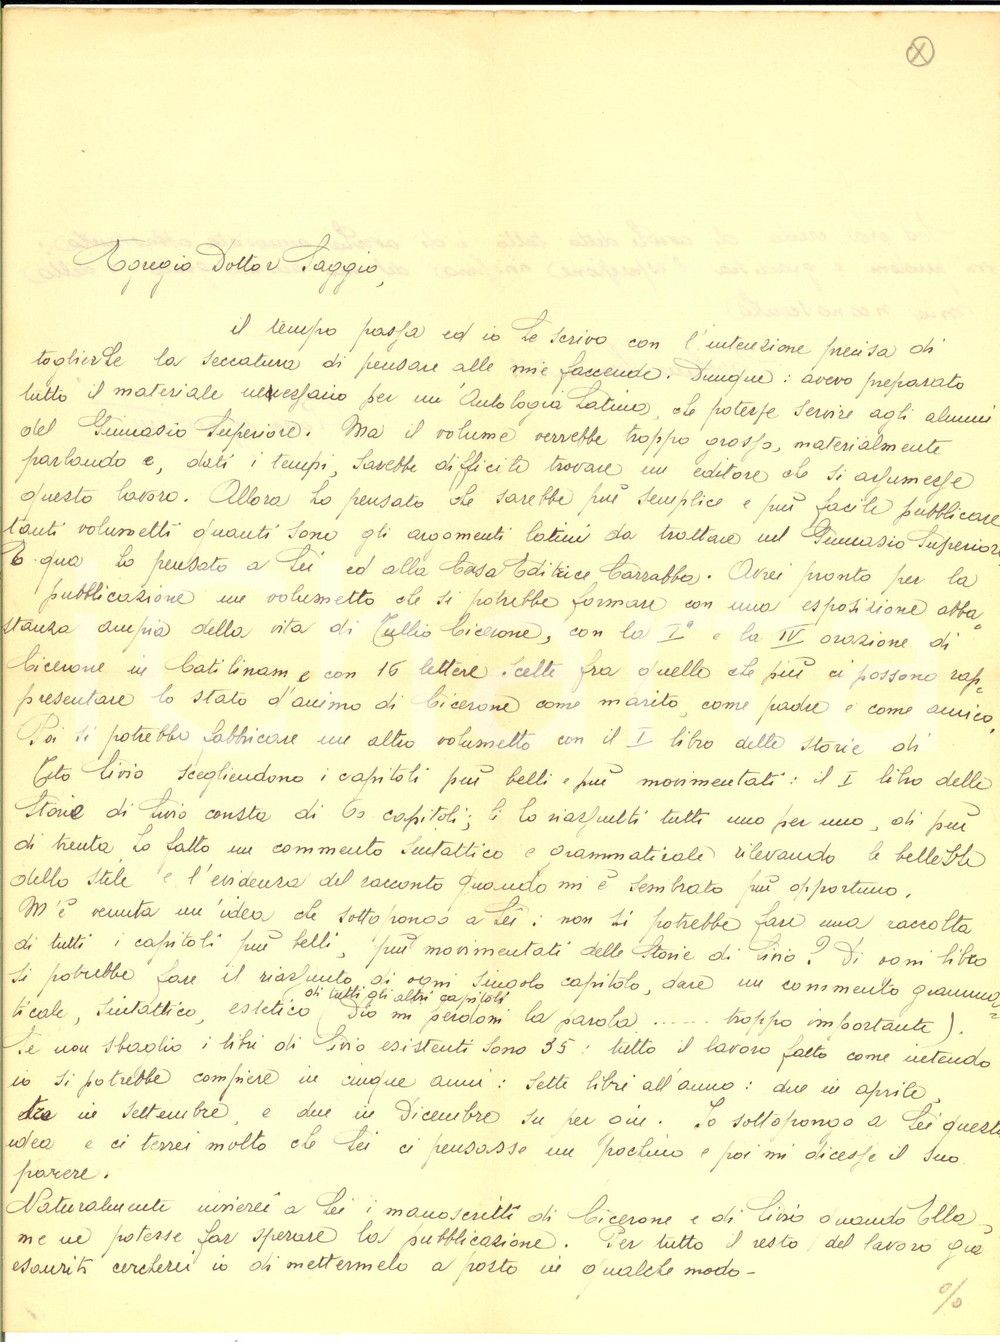 X
Egregio Dottor Saggio,
il tempo passa ed io Le scrivo con l'intenzione precisa di
toglierLe la seccatura di pensare alle mie faccende. Dunque: avevo preparato
tutto il materiale necessario per un'Antologia Latina, che potesse servire agli alunni
del Ginnasio Superiore. Ma il volume verrebbe troppo grosso, materialmente
parlando e, dati i tempi, sarebbe difficile trovare un editore che si assumesse
questo lavoro. Allora ho pensato che sarebbe più semplice e più facile pubblicare
tanti volumetti quanti sono gli argomenti latini da trattare nel Ginnasio Superiore
E qua ho pensato a Lei ed alla Casa Editrice Carrabba. Avrei pronto per la
pubblicazione un volumetto che si potrebbe formare con una esposizione abba-
stanza ampia della vita di Tullio Cicerone, con la Iª e la IV orazione di
Cicerone in Catilinam e con 16 lettere scelte fra quelle che più ci possono rap-
presentare lo stato d'animo di Cicerone come marito, come padre e come amico.
Poi si potrebbe fabbricare un altro volumetto con il I libro delle storie di
Tito Livio scegliendone i capitoli più belli e più movimentati: il I libro delle
Storie di Livio consta di 60 capitoli; li ho riassunti tutti uno per uno, di più
di trenta ho fatto un commento sintattico e grammaticale rilevando le bellezze
dello stile e l'evidenza del racconto quando mi è sembrato più opportuno.
M'è venuta un'idea che sottopongo a Lei: non si potrebbe fare una raccolta
di tutti i capitoli più belli, più movimentati delle Storie di Livio? Di ogni libro
si potrebbe fare il riassunto di ogni singolo capitolo, dare un commento gramma-
di tutti gli altri capitoli
ticale, sintattico, estetico (Dio mi perdoni la parola ...... troppo importante).
Se non sbaglio i libri di Livio esistenti sono 35: tutto il lavoro fatto come intendo
io si potrebbe compiere in cinque anni: sette libri all'anno: due in aprile,
tre in settembre, e due in Dicembre su per giù. Io sottopongo a Lei questa
idea e ci terrei molto che Lei ci pensasse un pochino e poi mi dicesse il suo
parere.
Naturalmente invierei a Lei i manoscritti di Cicerone e di Livio quando Ella
me ne potesse far sperare la pubblicazione. Per tutto il resto del lavoro già
esauriti cercherei io di mettermelo a posto in qualche modo -
%